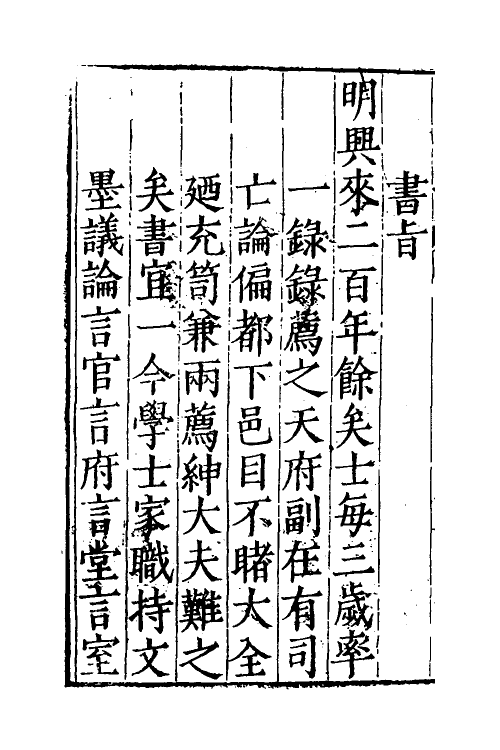 書旨
明興來二百年餘矣士每三歲率
一錄錄薦之天府副在有司
亡論偏都下邑目不睹大全
廼充笥兼兩薦紳大夫難之
矣書宜一今學士家職持文
墨議論言官言府言堂言室